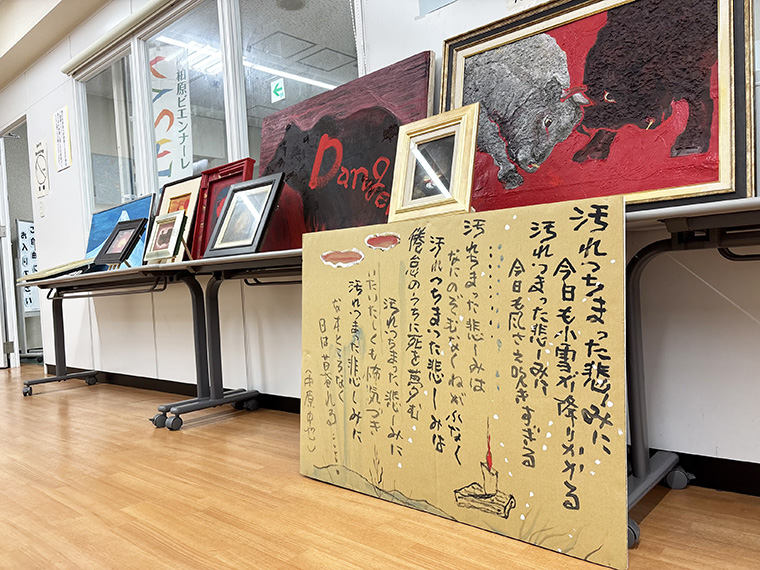 汚れっちまった悲しみに
今日も小雪が降りかかる
汚れつまった悲しみに
今日も風さえ吹きすぎる
汚れちまった悲しみは
なにのぞむなくねがふなく
汚れつちまった悲しみは
倦怠のうちに死を夢む
汚れつちまった悲しみに
いたいたしくも怖気づき
汚れつちまった悲しみに
なすところなく
日は暮れる……
(中原中也)
Dange
柏原ビエンナーレ
ご自由に
お入り下さい